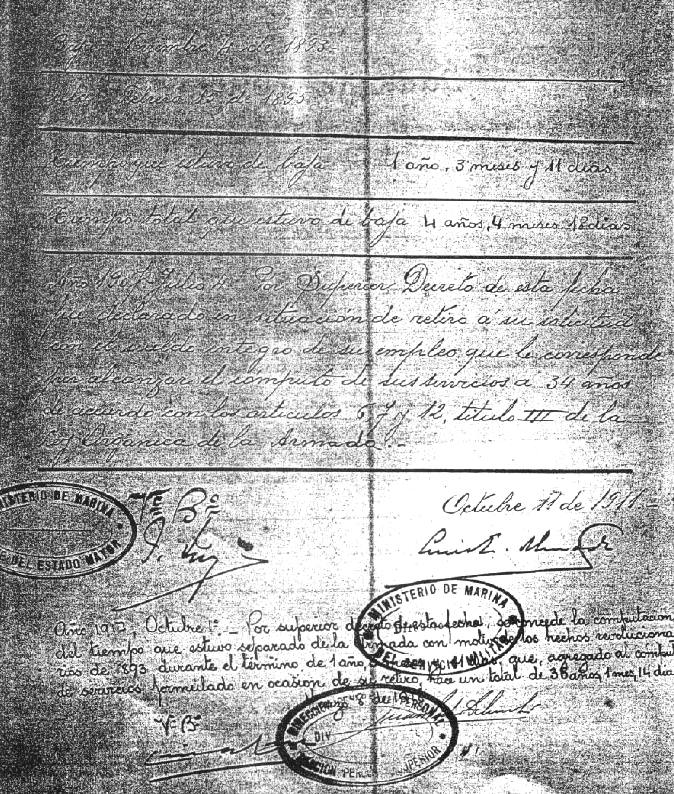 Baja Noviembre 4 de 1893.
Alta Febrero 15 de 1895.
Tiempo que estuvo de baja 1 año, 3 meses y 11 dias
Tiempo total que estuvo de baja 4 años, 4 meses 12 dias
Año 190 Julio Por Superior Decreto de esta fecha
fue declarado en situacion de retiro á su solicitud
con el sueldo integro de su empleo, que le corresponde
por alcanzar el computo de sus servicios a 34 años
de acuerdo con los articulos 6 7 y 12, titulo III de la
Ley Orgánica de la Armada.-
MINISTERIO DE MARINA
DEL ESTADO MAYOR
Vº Bº
Octubre 17 de 1911
MINISTERIO DE MARINA
DEL SERVICIO MILITAR
Año 1917, Octubre 1º_ Por superior decreto de esta fecha, se concede la computacion
del tiempo que estuvo separado de la Armada con motivo de los hechos revoluciona
rios de 1893 durante el término de 1 año, 3 meses, 11 dias, que, agregado al computo
de servicios formulado en ocasion de su retiro, hace un total de 36 años, 1 mes, 14 dias
Vº Bº
8 de
PERSONAL
DIV
SUPERIOR